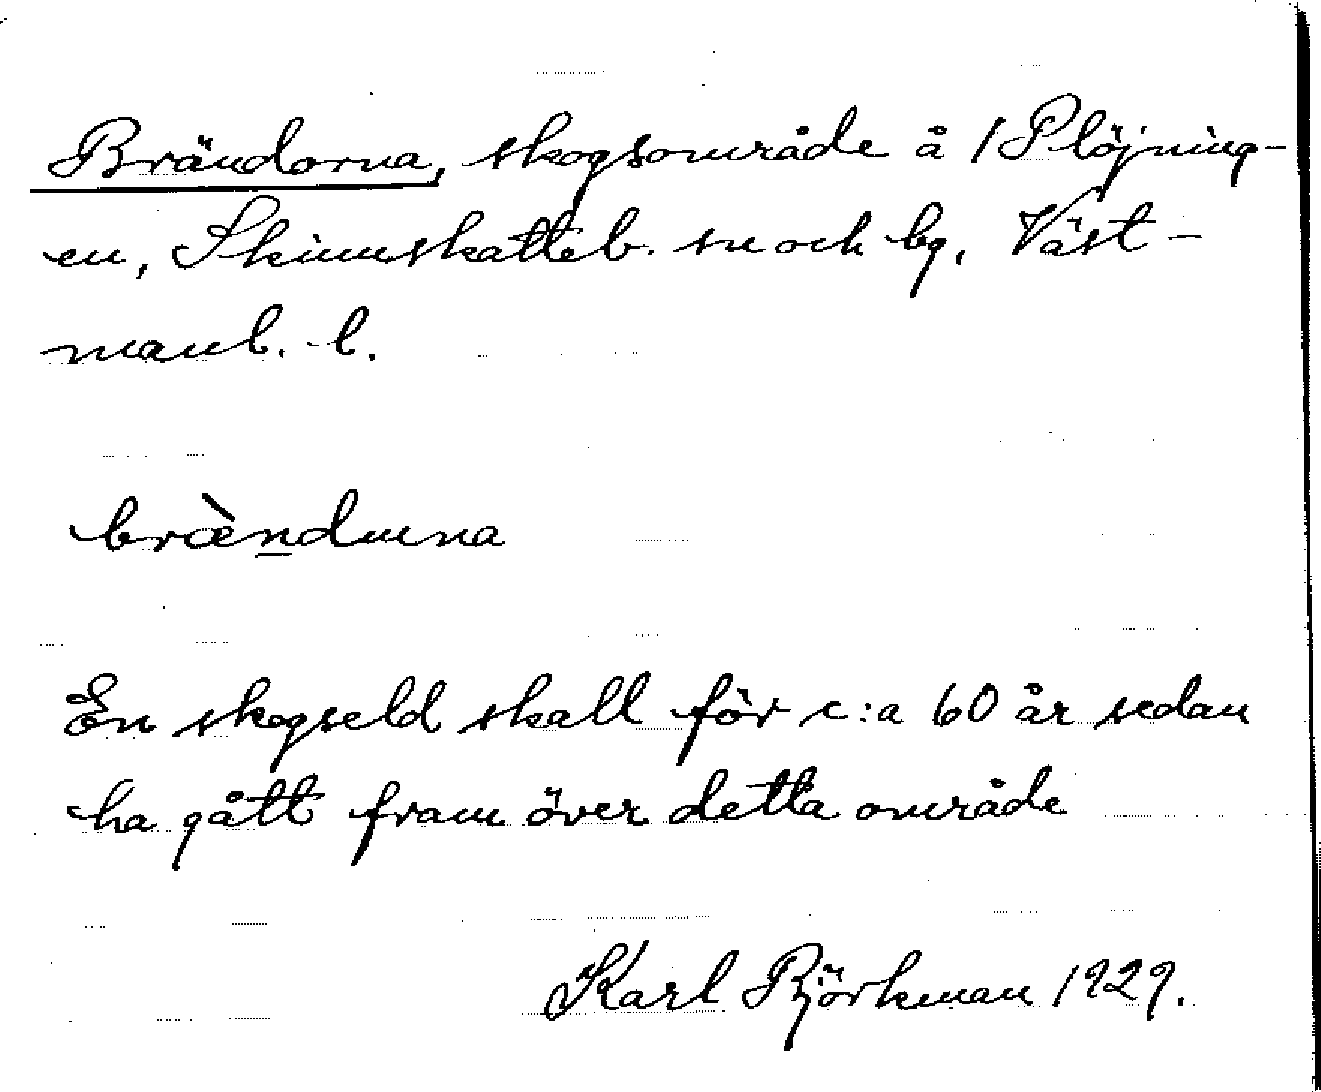 Brändorna, skogsområde å 1 Plöjning-
en, Skinnskatteb. sn och bg, Väst-
manl. l.
bræ̀ndᵫna
En skogseld skall för c:a 60 år sedan
ha gått fram över detta område
Karl Björkman 1929.